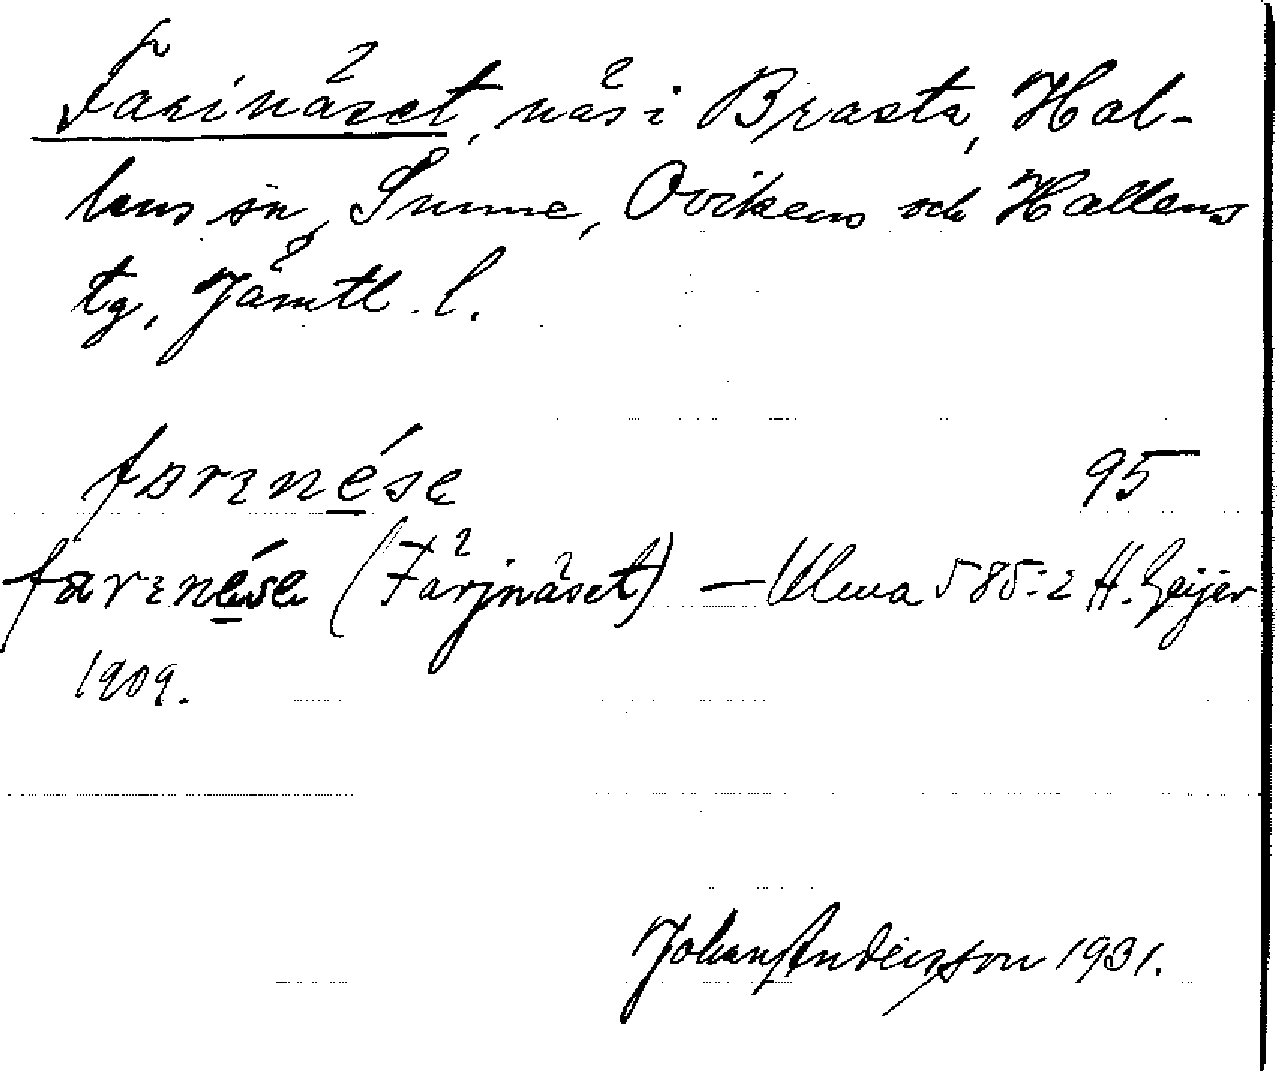 Farinäset, näs i Brasta, Hal-
lens sn, Sunne, Ovikens och Hallens
tg, Jämtl. l.
farenése 95
farenése (Färjnäset) — Ulma 585:2 H. Geijer
1909.
Johan Andersson 1931.